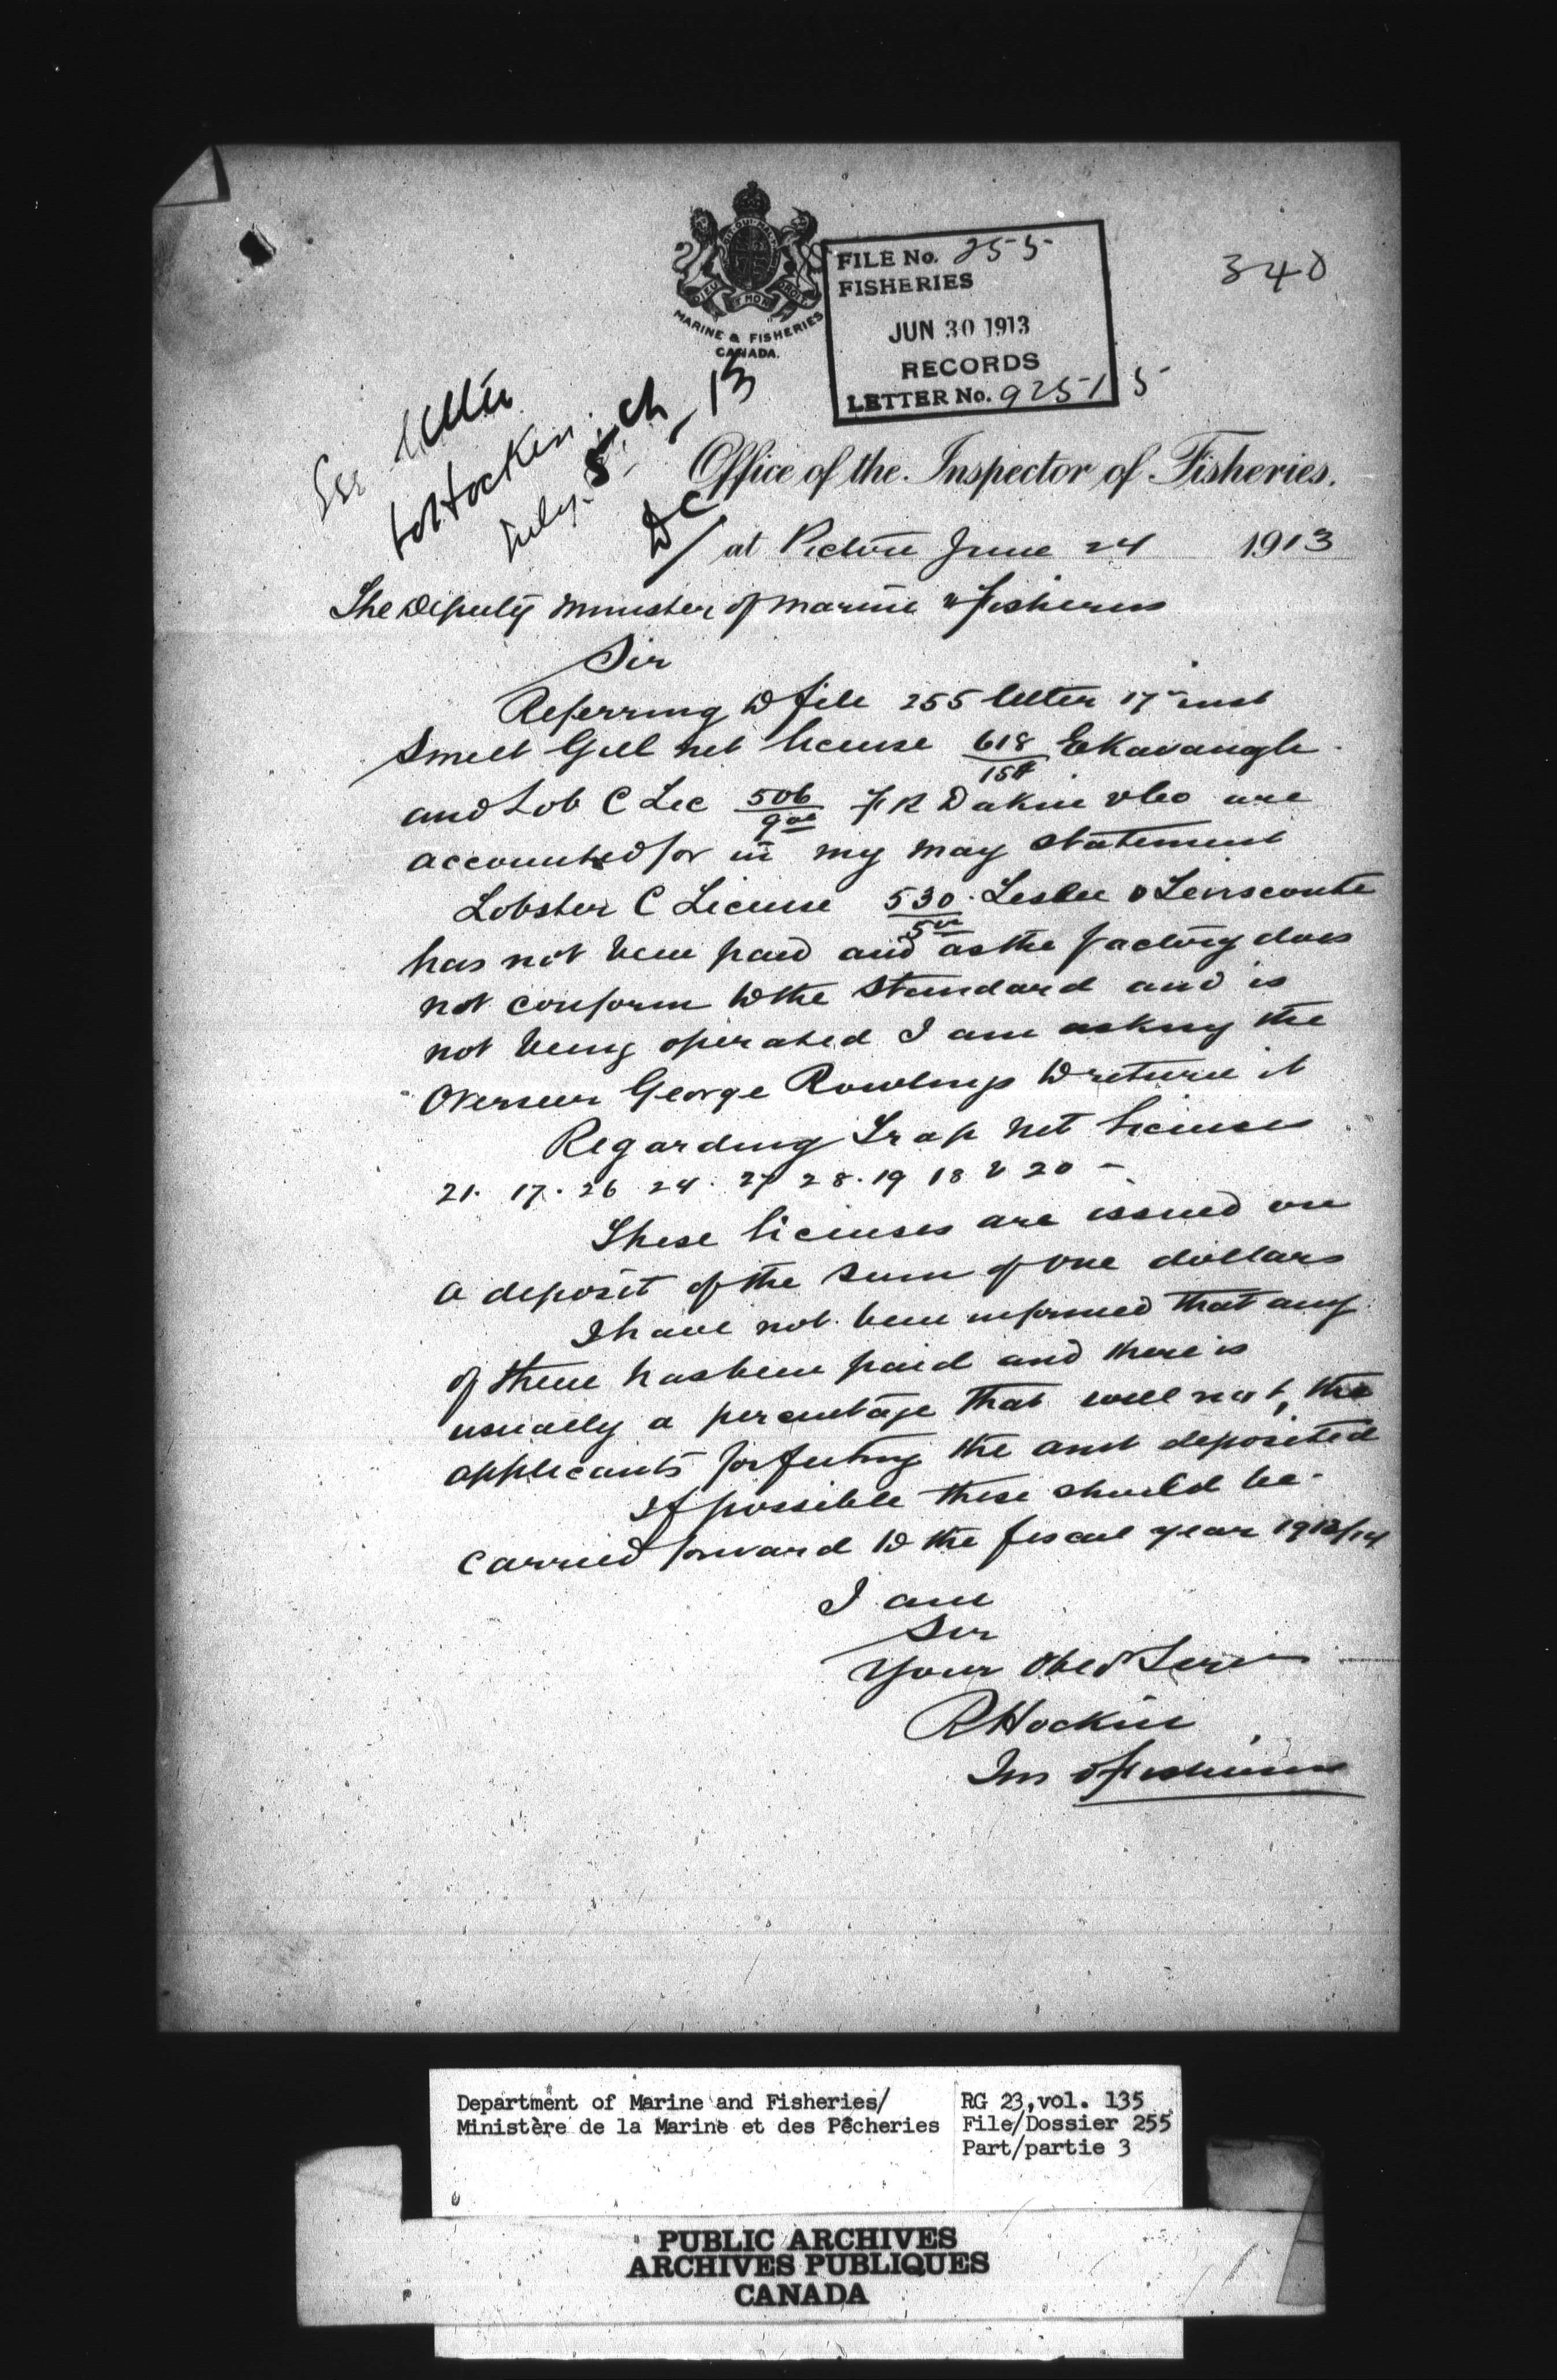 DIEU ET MON DROIT
MARINE & FISHERIES
CANADA.
FILE No. 255
FISHERIES
JUN 30 1913
RECORDS
LETTER No. 92515
340
See letter
to Hockin
July 5, 13
DC
Office of the Inspector of Fisheries.
at Pictou June 24 1913
The Deputy Minister of Marine & Fisheries
Sir
Referring to file 255 letter 17 inst
Smelt Gill net license 618 E Kavanagh
and Lob C Lic 506 F R Dakin are
accounted for in my May statement
Lobster C License 530 Leslie
has not been paid and as the factory does
not conform to the standard and is
not being operated I am asking the
Overseer George Rowlings to return it
Regarding Trap net licenses
21. 17. 26 24. 27 28. 19 18 & 20 -
These licenses are issued on
a deposit of the sum of one dollars
I have not been informed that any
of them has been paid and there is
usually a percentage that will not, the
applicants forfeiting the amt deposited
If possible these should be
carried forward to the fiscal year 1913/14
I am
Sir
Your Obed Serv
R Hockin
Ins of Fisheries
Department of Marine and Fisheries/
Ministère de la Marine et des Pêcheries
RG 23, vol. 135
File/Dossier 255
Part/partie 3
PUBLIC ARCHIVES
ARCHIVES PUBLIQUES
CANADA